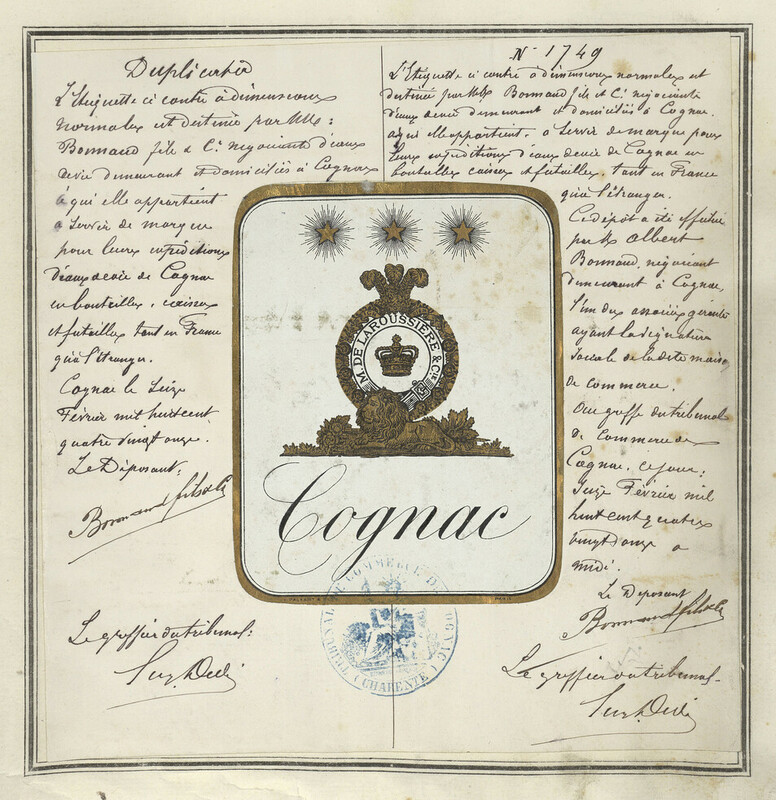 Duplicata
L'Etiquette ci contre à dimensions
normales est destinée par MM:
Bonnaud fils & Cie négociants d'eaux
devie demeurant et domiciliés à Cognac
à qui elle appartient
a servir de marque
pour leurs expéditions
d'eaux devie de Cognac
en bouteilles, caisses
et futailles tant en France
qu'à l'étranger.
Cognac le Seize
Février mil huit cent
quatre vingt onze.
Le Déposant:
Bonnaud fils & Cie
Le greffier du tribunal:
No 1749
L'Etiquette ci contre à dimensions normales est
destinée par MM Bonnaud fils et Cie négociants
d'eaux devie demeurant et domiciliés à Cognac.
à qui elle appartient, a servir de marque pour
leurs expéditions d'eaux devie de Cognac en
bouteilles caisses et futailles, tant en France
qu'à l'étranger.
Ce dépôt a été effectué
par M Albert
Bonnaud, négociant
demeurant à Cognac,
l'un des associés gérants
ayant la signature
sociale de la dite maison
de commerce.
Au greffe du tribunal
de Commerce de
Cognac, ce jour:
Seize Février mil
huit cent quatre
vingt onze a
midi.
Le Déposant
Bonnaud fils & Cie
Le greffier du tribunal
M. DE LAROUSSIÈRE & CIE
Cognac
TRIBUNAL DE COMMERCE DE COGNAC
(CHARENTE)
PARIS